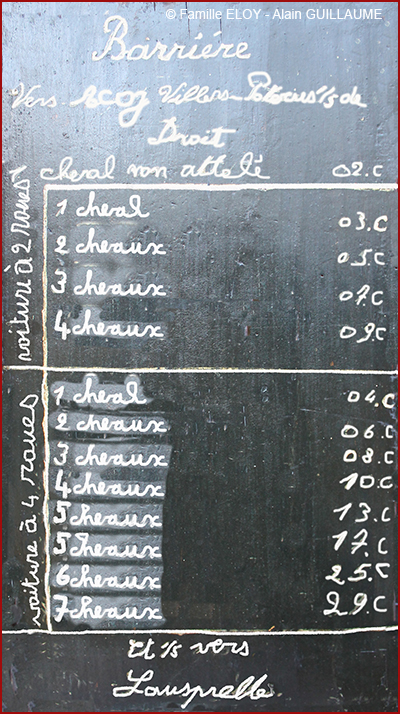 © Famille ELOY - Alain GUILLAUME
Barriére
Vers Acoz Villers-Poteries ⅓ de
Droit
cheval non attelé 02.C
voiture à 2 roues
1 cheval 03.C
2 cheaux 05.C
3 cheaux 07.C
4 cheaux 09.C
voiture à 4 roues
1 cheval 04.C
2 cheaux 06.C
3 cheaux 08.C
4 cheaux 10.C
5 cheaux 13.C
5 cheaux 17.C
6 cheaux 25.C
7 cheaux 29.C
et ⅓ vers
Lausprelle.